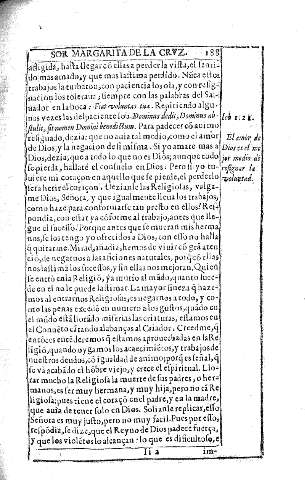 SOR MARGARITA DE LA CRVZ. 188
astigida, hasta llegar cõ ellas a perder la vista, el senti-
do mas amado, y que mas lastima perdido. Nũca estos
trabajos la turbaron; con paciencia los oìa, y con resig-
nacion los tolerava; siempre con las palabras del Sal-
uador en la boca: Fiat voluntas tua. Repitiendo algu-
nas vezes las del paciente Iob. Dominus dedit, Dominus ab-
stulit, sit nomen Domini benedictum. Para padecer cõ animo
resignado, dezia; que no auia tal medio, como el amor
de Dios, y la negacion de si misma. Si yo amare mas a
Dios, dezia, que a todo lo que no es Dios, aunque todo
se pierda, hallarè el consuelo en Dios: Pero si yo tu-
uiere mi coraçon en aquello que se pierde, el perderlo
serà herirse el coraçon. Dezianle las Religiosas, valga-
me Dios, Señora, y que igualmente siente los trabajos,
como haze para conformarse tan presto en ellos? Res-
pondia, con estar ya cõforme al trabajo, antes que lle-
gue el sucesso. Porque antes que se mueran mis herma-
nos, se los tengo yo ofrecidos a Dios, con esso no halla
q̃ quitarme. Mirad, añadia, hemos de viuir cõ grã aten-
ciõ, de negarnos a las aficiones naturales, porq̃ cõ ellas
nos lastima los sucessos, y sin ellas nos mejoran. Quien
se entrò en la Religiõ, ya murio al mũdo, quanto suce-
de en el no le puede lastimar. La mayor fineza q̃ haze-
mos al entrarnos Religiosas, es negarnos a todo, y co-
mo las penas exceden en numero a los gustos, quãdo en
el mũdo està llorãdo miserias las criaturas, estamos en
el Conuẽto cãtando alabanças al Criador. Creedme, q̃
entõces entẽderemos q̃ estamos aprouechadas en la Re-
ligiõ, quando oygamos los acaecimiẽtos, y trabajos de
nuestros deudos, cõ igualdad de animo; porq̃ es señal, q̃
se và acabãdo el hõbre viejo, y crece el espiritual. Llo-
rar mucho la Religiosa la muerte de sus padres, o her-
manos, es ser muy hermana, y muy hija, pero no cã Re-
ligiosa; pues tiene el coraçõ en el padre, y en la madre,
que auia de tener solo en Dios. Solianle replicar, esso,
Señora es muy justo, pero no muy facil. Pues por esso,
respõdia, se dize, que el Reyno de Dios padece fuerça,
y que los violẽtos lo alcançan: lo que es dificultoso, e
Ii 2 im-
Iob 1. 21.
El amor de
Dios es el me
jor medio de
resignar la
voluntad.